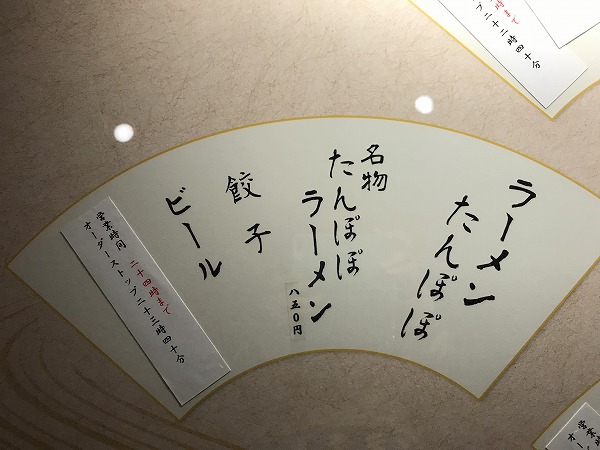 ラーメン
たんぽぽ
名物
たんぽぽ
ラーメン
八五０円
餃子
ビール
営業時間 二十四時まて
オーダーストップ二十三時四十分
時まて
プ二十三時四十分
営業時
オーダ